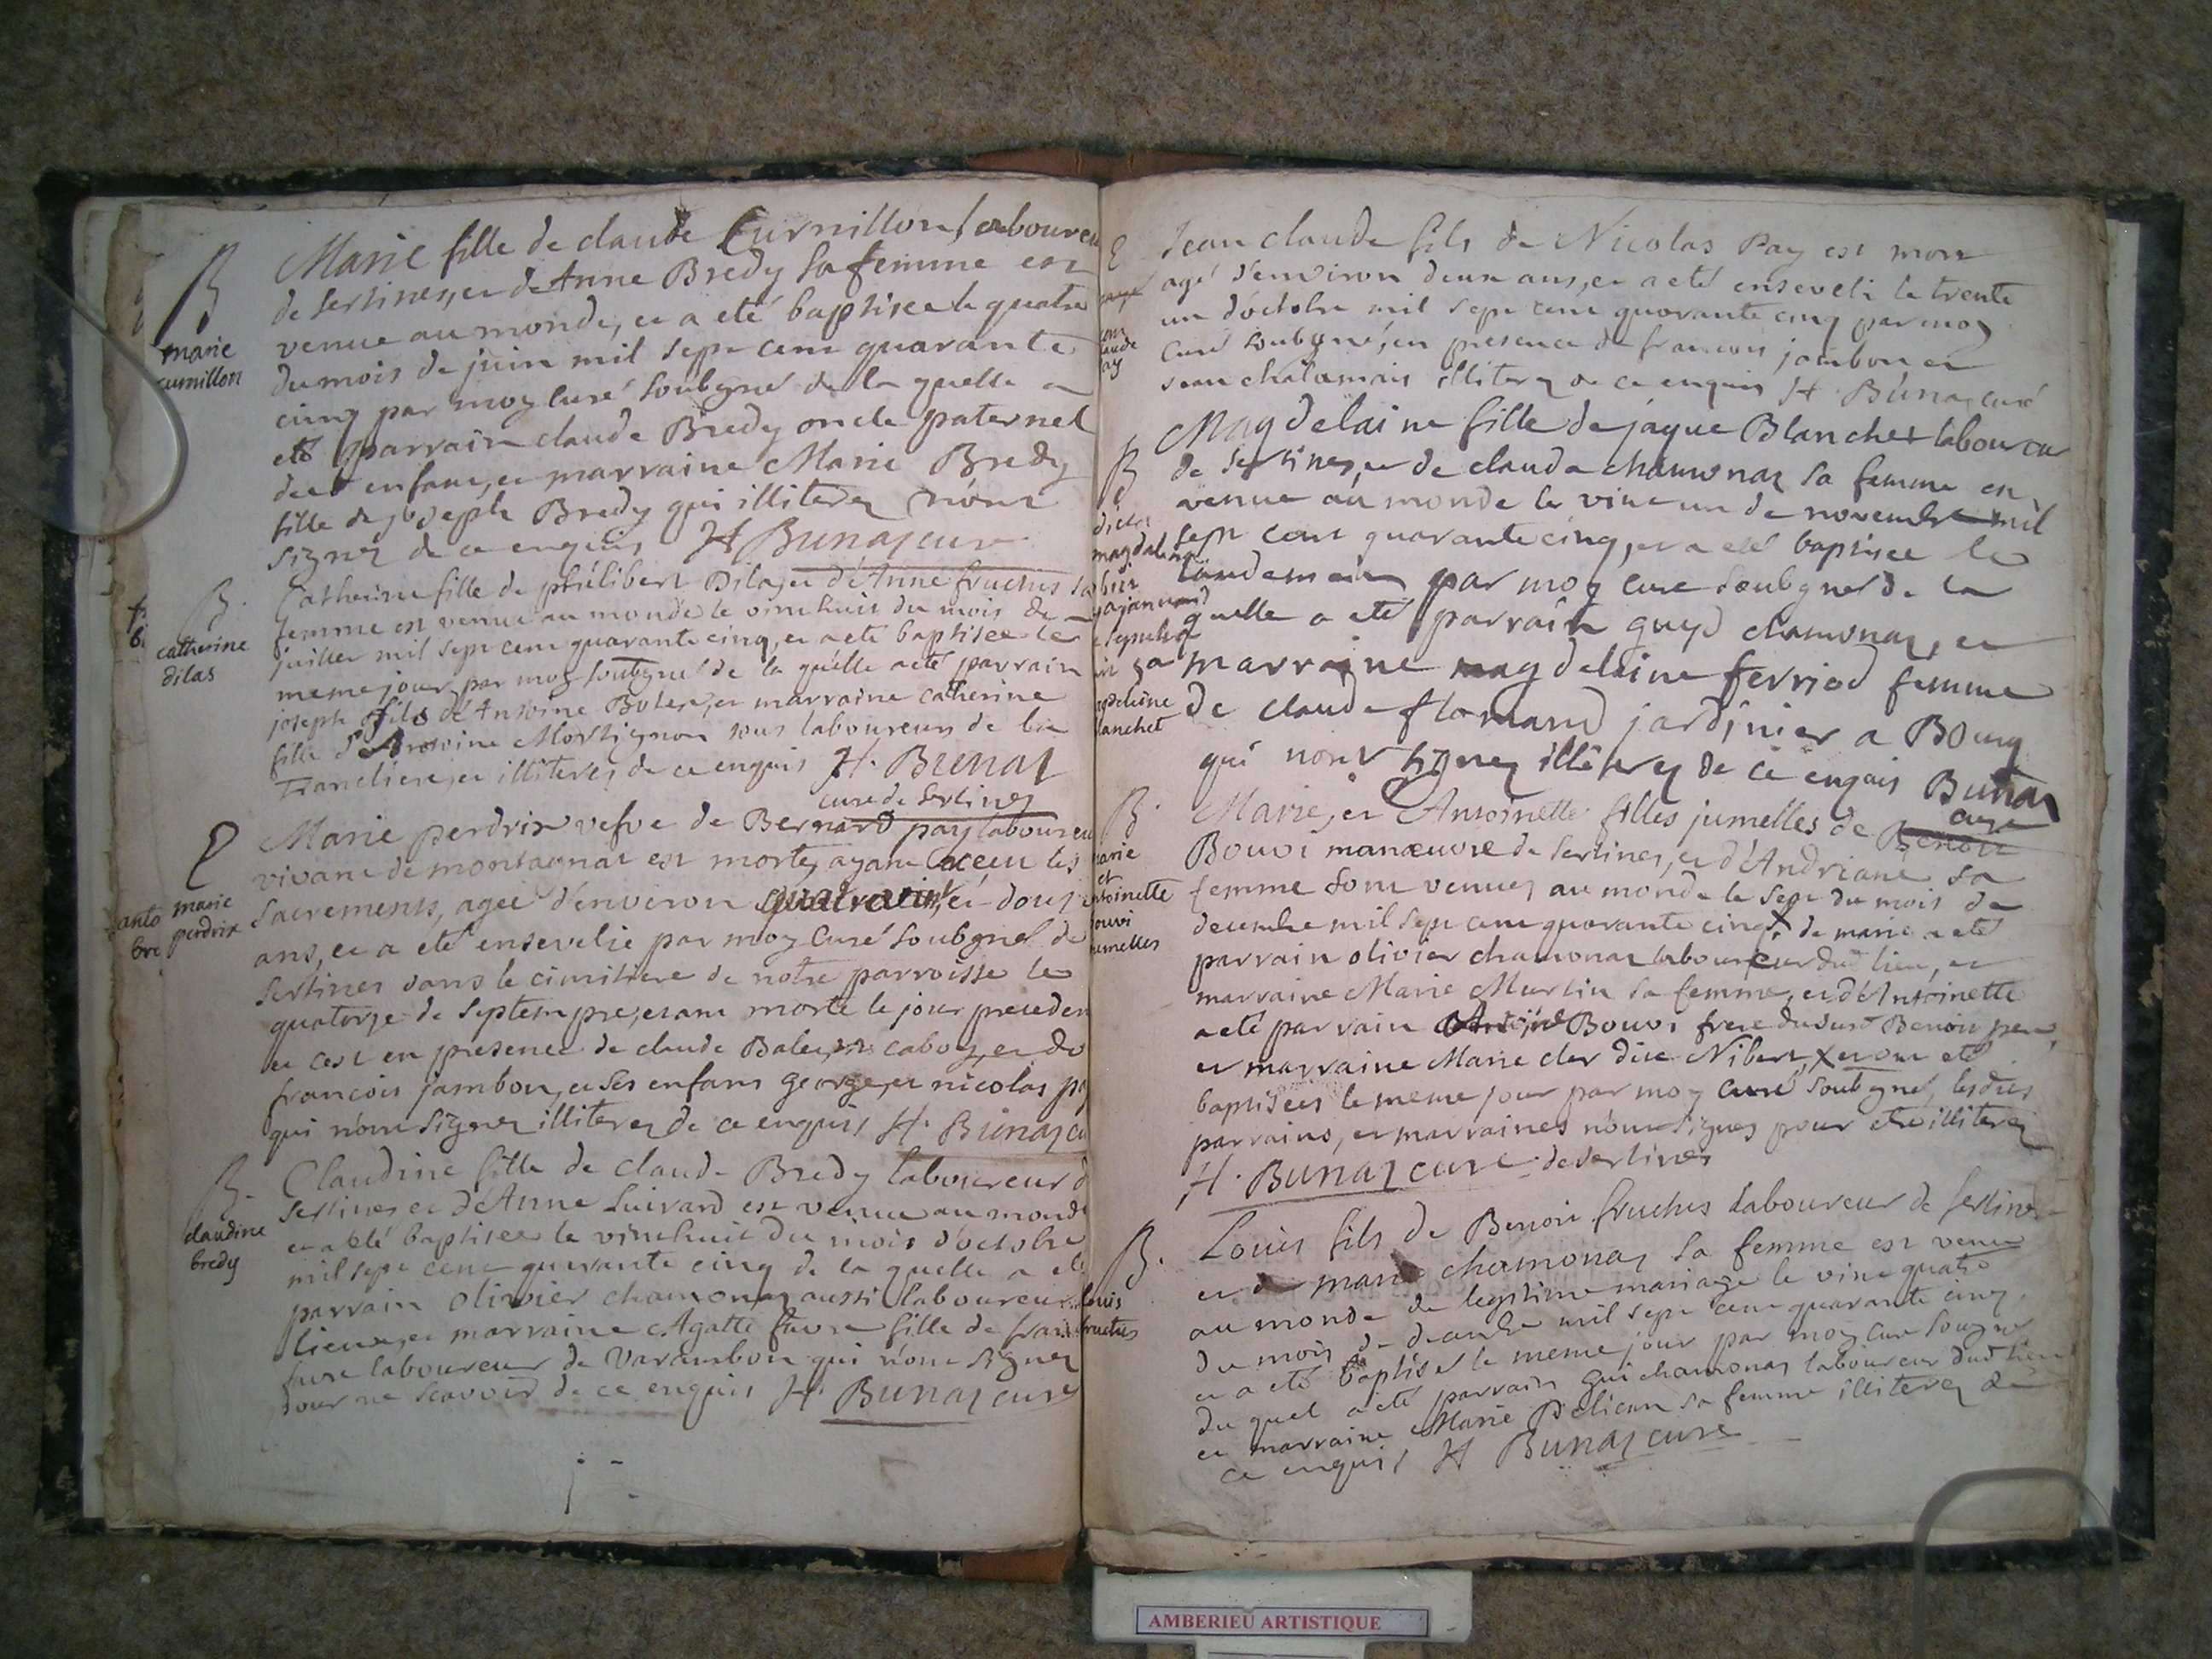 B
marie
curnillon
Marie fille de claude Curnillon laboureu
de Sertines, et de Anne Bredy sa femme est
venue au monde, et a eté baptisée le quatre
du mois de juin mil sept cent quarante
cinq par moy curé soubgné de la quelle a
eté parrain claude Bredy oncle paternel
dud enfant, et marraine Marie Bredy
fille de joseph Bredy qui illiterez n'ont
signez de ce enquis H Bunaz curé
B.
catherine
dilas
Catherine fille de phélibert Dilas, et d'Anne fructus sa
femme est venue au monde le vint huit du mois de
juillet mil sept cent quarante cinq, et a eté baptisée le
meme jour par moy soubgné de la quelle a eté parrain
joseph fils d'Antoine, et marraine catherine
fille d'Antoine tous laboureurs de la
Trancliere, et illiterés de ce enquis H. Bunaz
curé de Sertines
E
marie
perdrix
anto
bre
Marie perdrix vefve de Bernard pay laboureu
vivant de montagnat est morte, ayant receu les
sacrements, agée d'environ quatre vint, et douze
ans, et a eté ensevelie par moy curé soubgné de
Sertines dans le cimitiere de notre parroisse le
quatorze de septempre, etant morte le jour preceden
et cest en presence de claude caboz, et de
francois jambon, et ses enfans george, et nicolas pay
qui n'ont signez illiterez de ce enquis H. Bunaz cu
B.
claudine
bredy
Claudine fille de claude Bredy laboureur d
Sertines, et d'Anne Suivard est venue au monde
et a eté baptisée le vint huit du mois d'octobre
mil sept cent quarante cinq de la quelle a eté
parrain olivier chamonaz aussi laboureur
lieux, et marraine Agatte favre fille de fran
favre laboureur de Varambon qui n'ont signez
pour ne scavoir de ce enquis H. Bunaz curé
E
Jean claude fils de Nicolas Pay est mort
agé d'environ deux ans, et a eté enseveli le trente
un d'octobre mil sept cent quarante cinq par moy
curé soubgné, en presence de francois jambon, et
jean illiterez de ce enquis H. Bunaz curé
B
magdeleine
blanchet
Magdelaine fille de jaque Blanchet laboureur
de Sertines, et de claude chamonaz sa femme est
venue au monde le vint un de novembre mil
sept cent quarante cinq, et a eté baptisée le
landemain par moy curé soubgné de la
quelle a eté parrain guyd chamonaz, et
sa marraine magdelaine ferriod femme
de claude flamand jardinier a Bourg
qui n'ont signez illiterez de ce enquis Bunaz
curé
B.
marie
et
antoinette
bouvi
jumelles
Marie, et Antoinette filles jumelles de Benoit
Bouvi manœuvre de Sertines, et d'Andriane sa
femme sont venues au monde le sept du mois de
decembre mil sept cent quarante cinq, de marie a eté
parrain olivier chamonaz laboureur dud lieu, et
marraine Marie Murtin sa femme, et d'Antoinette
a eté parrain Antoine Bouvi frere dususd Benoit pere,
et marraine Marie cler dite Nibert, x et ont eté
baptisées le meme jour par moy curé soubgné, lesdits
parrains, et marraines n'ont signes pour etre illiterez
H. Bunaz curé de Sertines
B.
louis
fructus
Louis fils de Benoit fructus laboureur de Sertines
et de marie chamonaz sa femme est venu
au monde de legitime mariage le vint quatre
du mois de decembre mil sept cent quarante cinq,
et a eté baptisé le meme jour par moy curé sougné
du quel a eté parrain gui chamonaz laboureur dud lieu
et marraine Marie Pelican sa femme illiterez de
ce enquis H Bunaz curé
AMBERIEU ARTISTIQUE